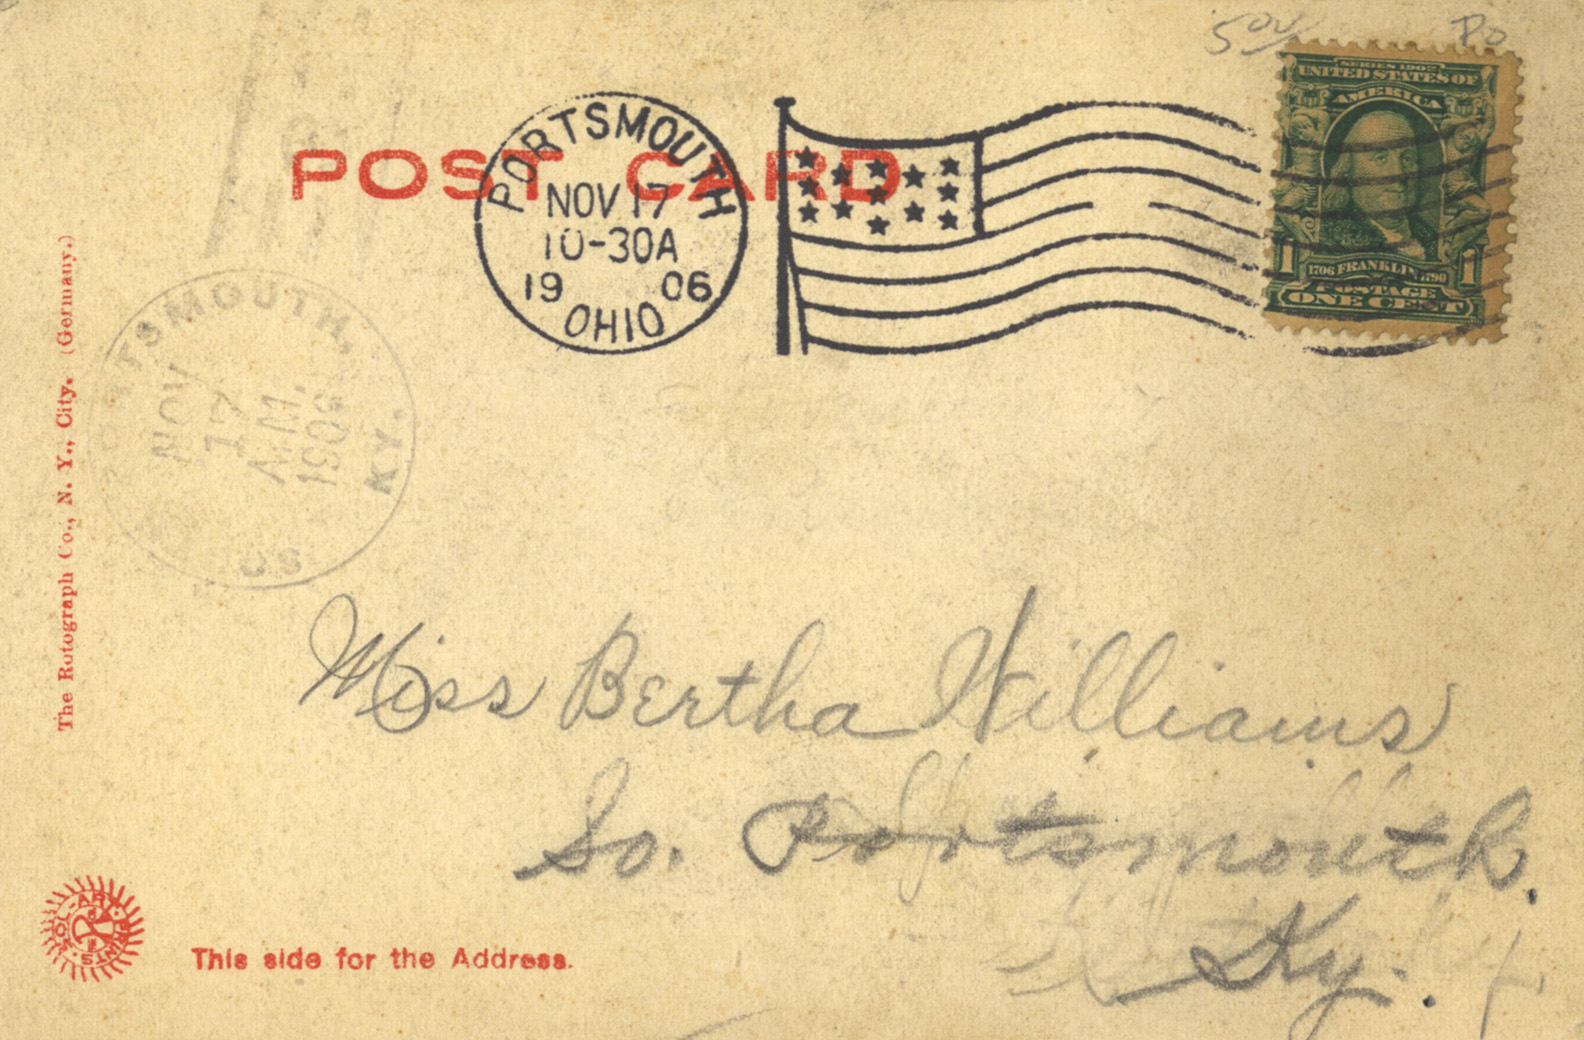 5
Po
SERIES 1902
UNITED STATES OF
AMERICA
1 1706 FRANKLIN 1790 1
POSTAGE
ONE CENT
POST CARD
PORTSMOUTH
NOV 17
10-30A
1906
OHIO
PORTSMOUTH,
KY.
NOV
17
A.M.
190
US
The Rotograph Co., N. Y., City. (Germany.)
Miss Bertha Williams
So. Portsmouth.
Ky.
SOL-ART PRINTS
This side for the Address.